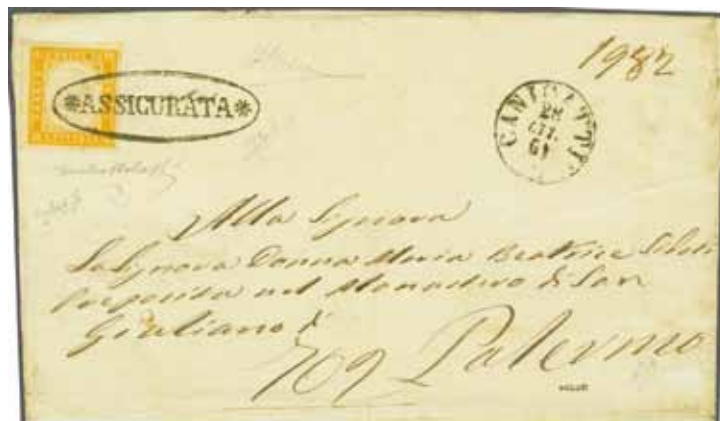 1982
*ASSICURATA*
CANICATTI
28
OTT.
61
Alla Signora
La Signora Donna Maria Beatrice
Preposita nel Monastero di San
Giuliano
709 Palermo